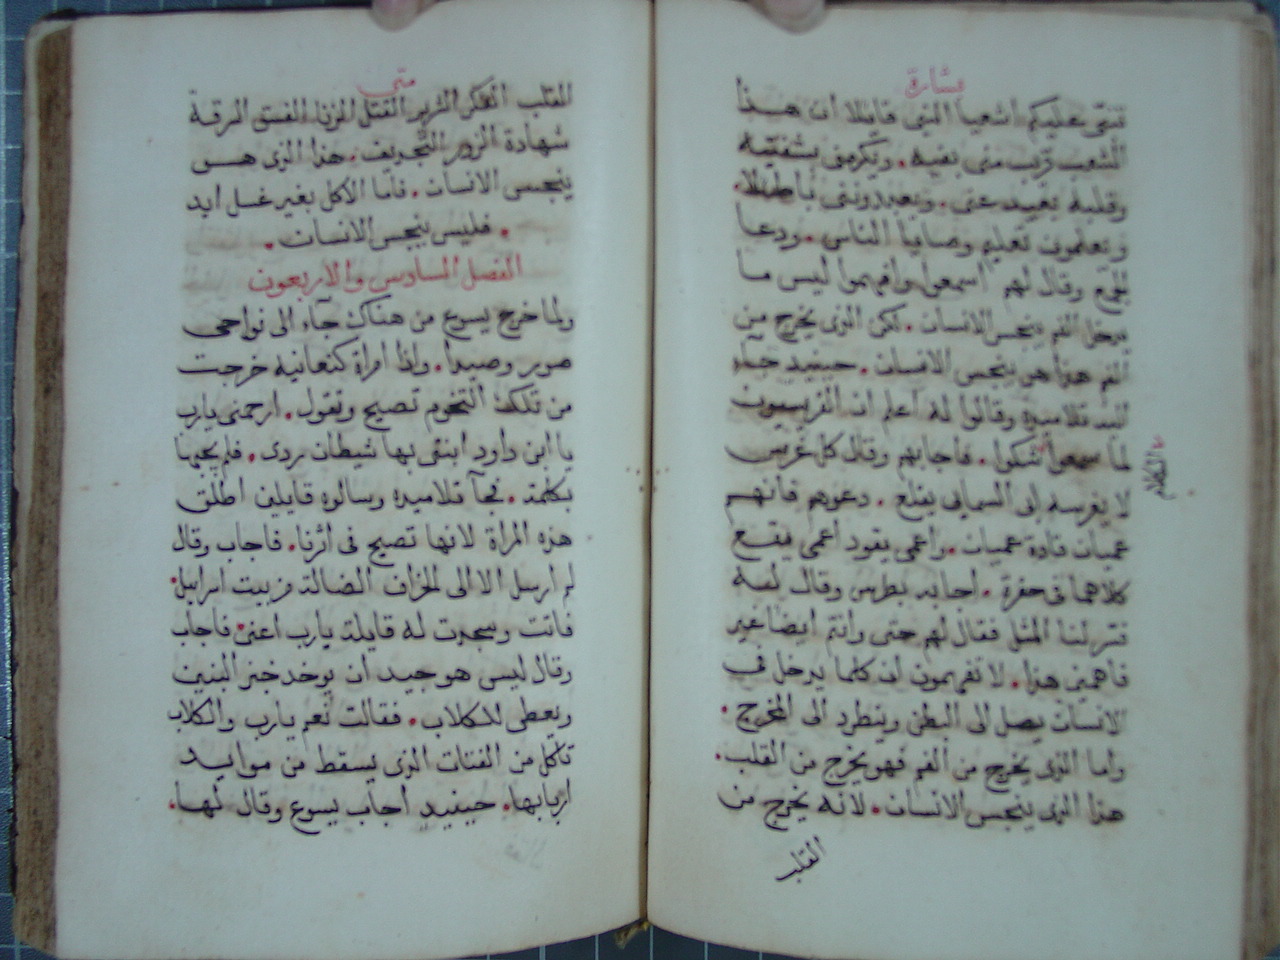 بشارة
تنبى عليكم اشعيا النبى قايلا ان هذا
الشعب قريب منى بفيه . ويكرمنى بشفتيه
وقلبه بعيد عنى . ويعبدوننى باطلا .
ويعلمون تعليم وصايا الناس . ودعا
الجمع وقال لهم اسمعوا وافهموا ليس ما
يدخل الفم ينجس الانسان . لكن الذى يخرج من
الفم هذا هو ينجس الانسان . حينيد جاء
اليه تلاميذه وقالوا له اعلم ان الفريسيون
لما سمعوا شكوا . فاجابهم وقال كل غرس
الكلام
لا يغرسه ابى السمايى يقلع . دعوهم فانهم
عميان قادة عميان . واعمى يقود اعمى فيقع
كلاهما فى حفرة . اجابه بطرس وقال له
فسر لنا المثل فقال لهم حتى وانتم ايضا غير
فاهمين هذا . لا تفهمون ان كلما يدخل فى
الانسان يصل الى البطن وينطرد الى المخرج .
واما الذى يخرج من الفم فهو يخرج من القلب .
هذا الذى ينجس الانسان . لانه يخرج من
القلب
متى
القلب الفكر الشرير القتل الزنا الفسق السرقة
شهادة الزور التجديف . هذا الذى هو
ينجس الانسان . فاما الاكل بغير غسل ايد
. فليس ينجس الانسان .
الفصل السادس والاربعون
ولما خرج يسوع من هناك جآء الى نواحى
صور وصيدا . واذا امراة كنعانيه خرجت
من تلك التخوم تصيح وتقول . ارحمنى يارب
يا ابن داود ابنتى بها شيطان ردى . فلم يجبها
بكلمة . فجآ تلاميذه وسالوه قايلين اطلق
هذه المراة لانها تصيح فى اثرنا . فاجاب وقال
لم ارسل الا الى الخراف الضالة من بيت اسراييل .
فاتت وسجدت له قايلة يارب اعنى . فاجاب
وقال ليس هو جيد ان يوخد خبز البنين
ويعطى للكلاب . فقالت نعم يارب والكلاب
تاكل من الفتات الذى يسقط من موايد
اربابها . حينيد اجاب يسوع وقال لها .